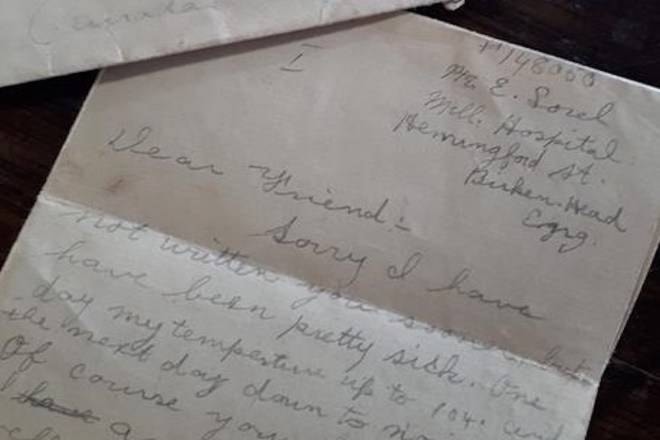 Canada
I
148050
Pte. E. Sorel
Mill. Hospital.
Hemingford St.
Birken-Head
Eng.
Dear Friend:-
Sorry I have
not written you sooner, but
have been pretty sick. One
day my temperture up to 104° and
the next day down to
Of course you
I have